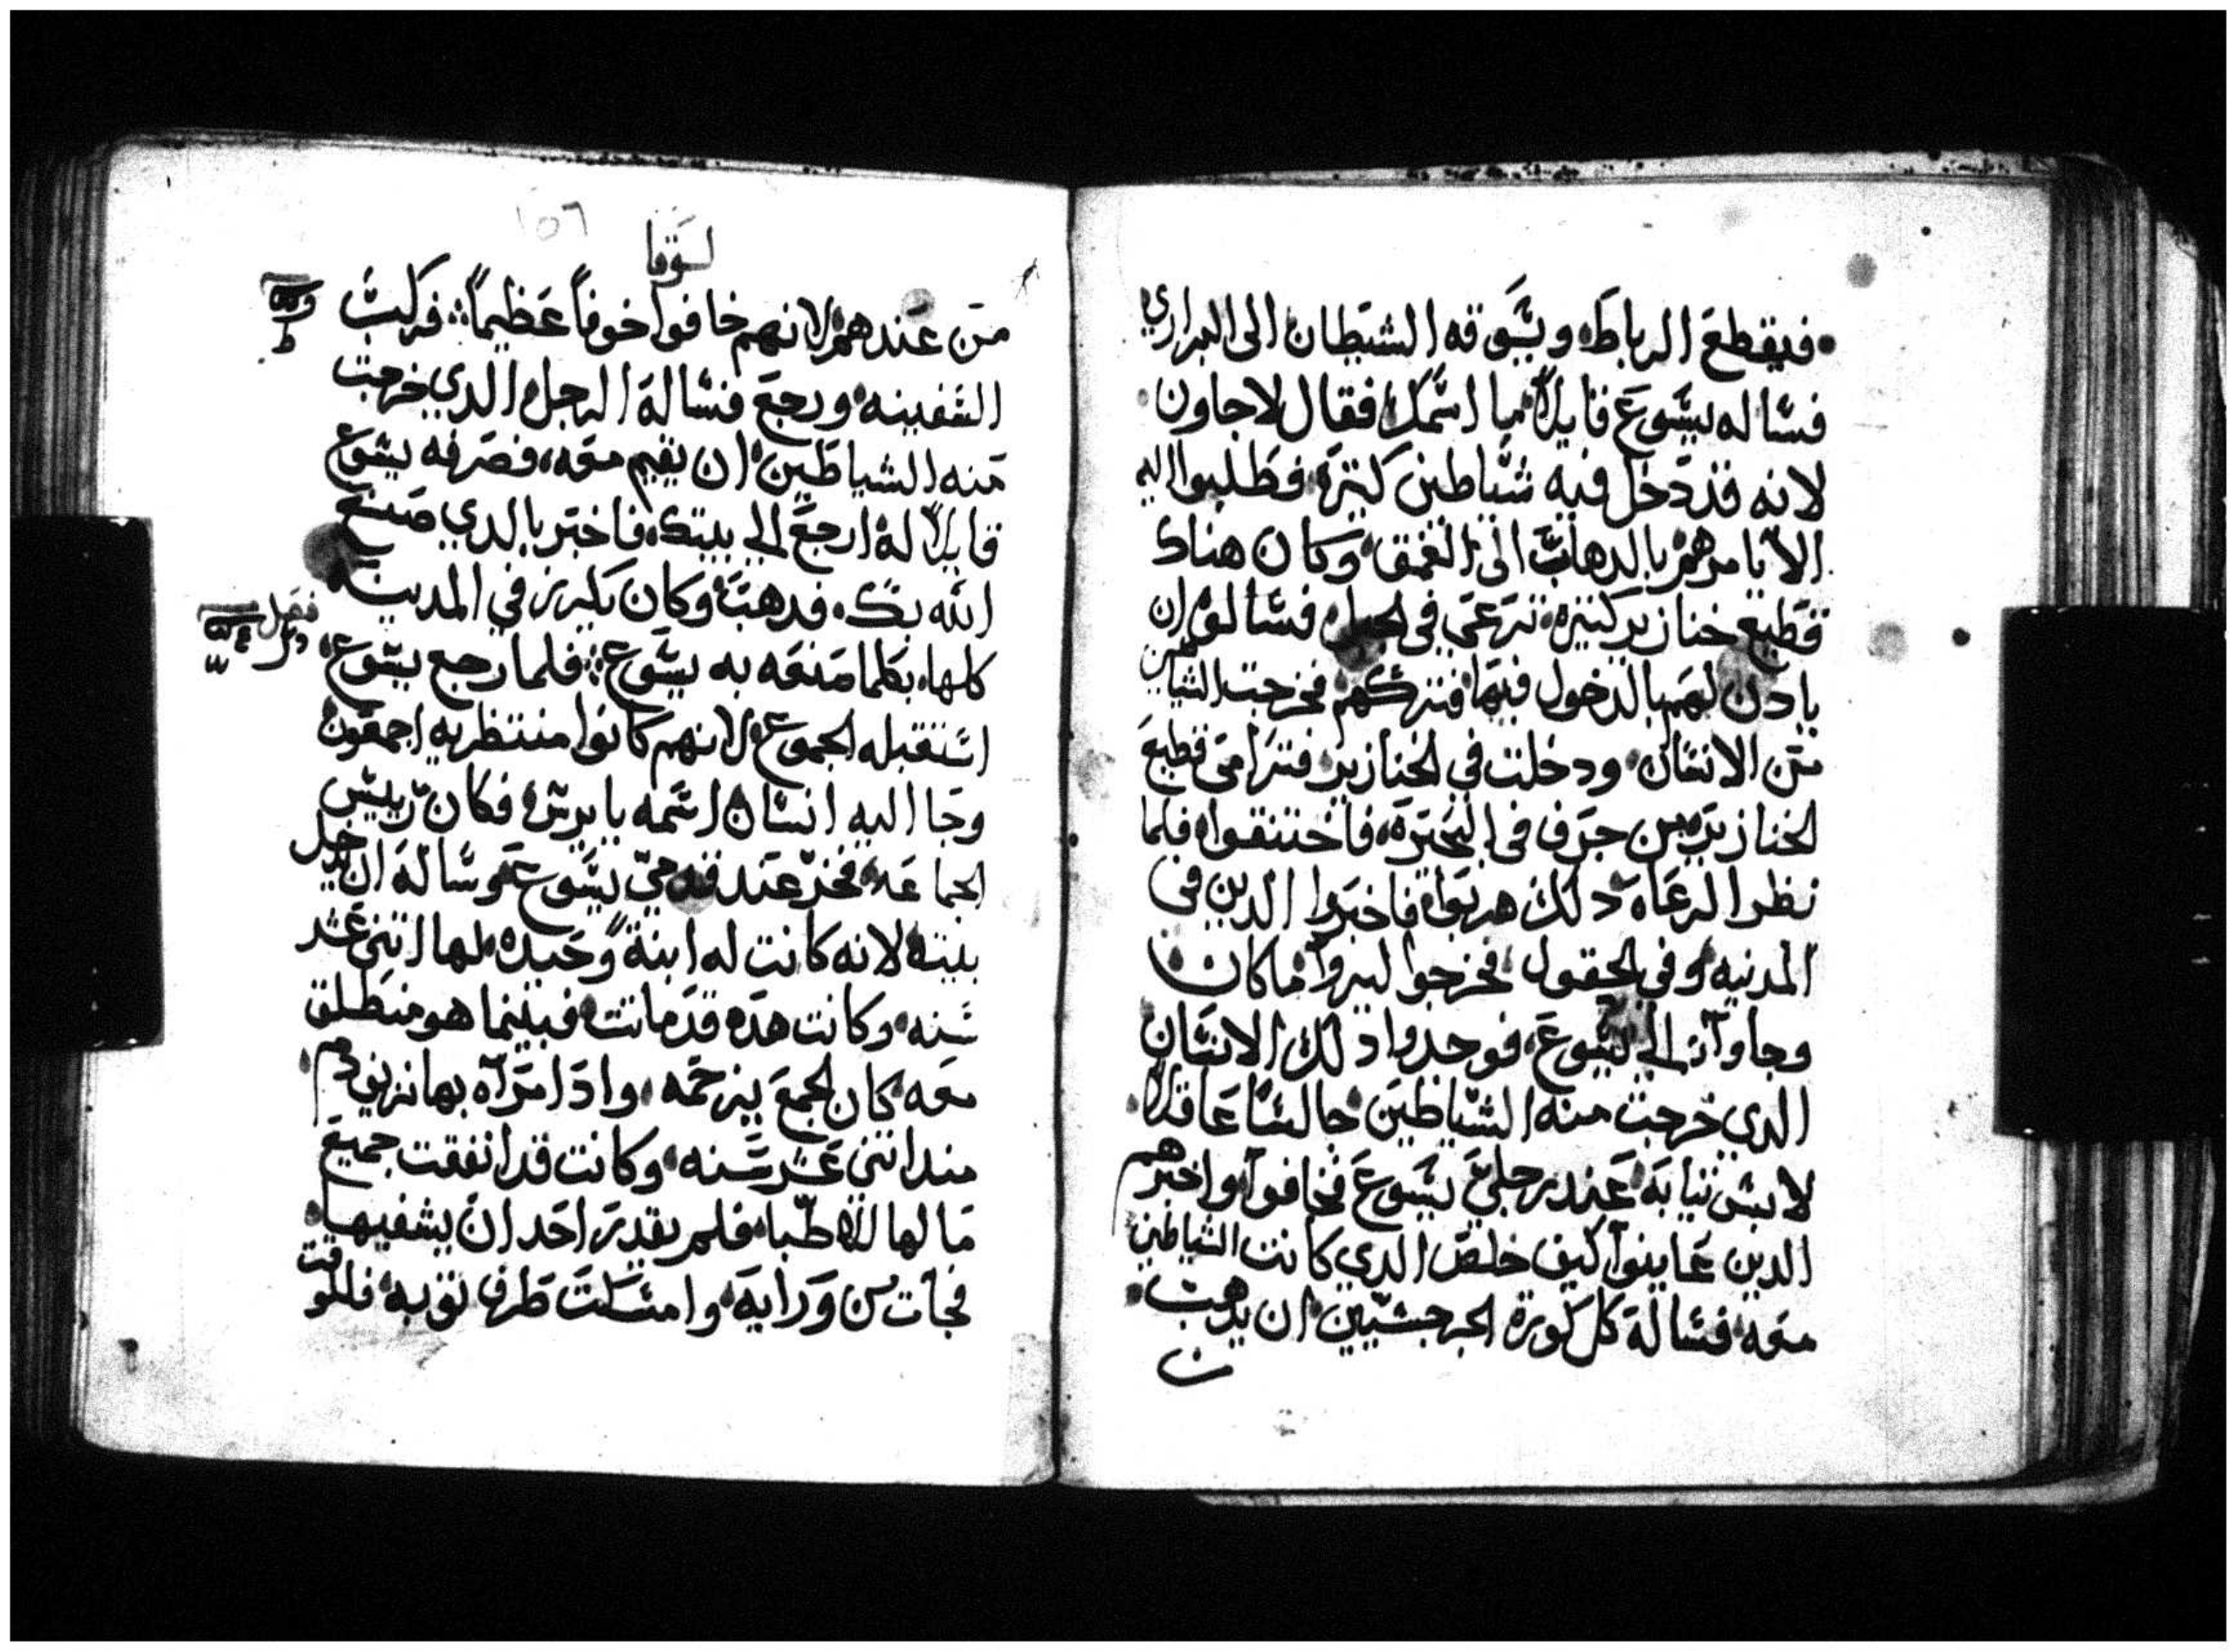 فيقطع الرباط، ويسوقه الشيطان الى البراري
فساله يسوع قايلاً ما اسمك فقال لاجاون
لانه قد دخل فيه شياطين كتيرة فطلبوا اليه
الا يامرهم بالدهاب الى العمق، وكان هناك
قطيع خنازير كتيره ترعى في الجبل فسالوه ان
يادن لهم بالدخول فيها فتركهم فخرجت الشياطين
من الانسان ودخلت في الخنازير فترامى قطيع
الخنازير من جرف في البحيرة، فاختنقوا فلما
نظر الرعاه دلك هربوا فاخبروا الدين في
المدنيه وفي الحقول فخرجوا ليروا ما كان
وجاوا الى يسوع، فوجدوا دلك الانسان
الدي خرجت منه الشياطين جالساً عاقلاً
لابس تيابه عند رجلي يسوع فخافوا واخبرهم
الدين عاينوا كيف خلص الدي كانت الشياطين
معه فساله كل كورة الجرجسيين ان يدهب
ن
١٥٦
لوقا
من عندهم لانهم خافوا خوفاً عظيماً ⁘ فركب
السفينه ورجع فساله الرجل الدي خرجت
منه الشياطين ان يقيم معه، فصرفه يسوع
قايلاً له ارجع الى بيتك، فاخبر بالدي صنع
الله بك، فدهب وكان يكرز في المدينه
كلها، بكلما صنعه به يسوع ⁘ فلما رجع يسوع
فصل
استقبله الجموع لانهم كانوا منتظريه اجمعون
وجا اليه انسان اسمه يايرس فكان رييس
الجماعه فخر عند قدمي يسوع وساله ان يدخل
بيته لانه كانت له ابنةً وحيده لها اتني عشر
سنه وكانت هده قد ماتت فبينما هو منطلق
معه كان الجمع يزحمه، وادا مراه بها نزيف دم
مند اتني عشر سنه وكانت قد انفقت جميع
مالها للاطبا، فلم يقدر احد ان يشفيها
فجات من ورايه وامسكت طرف توبه فللوقت